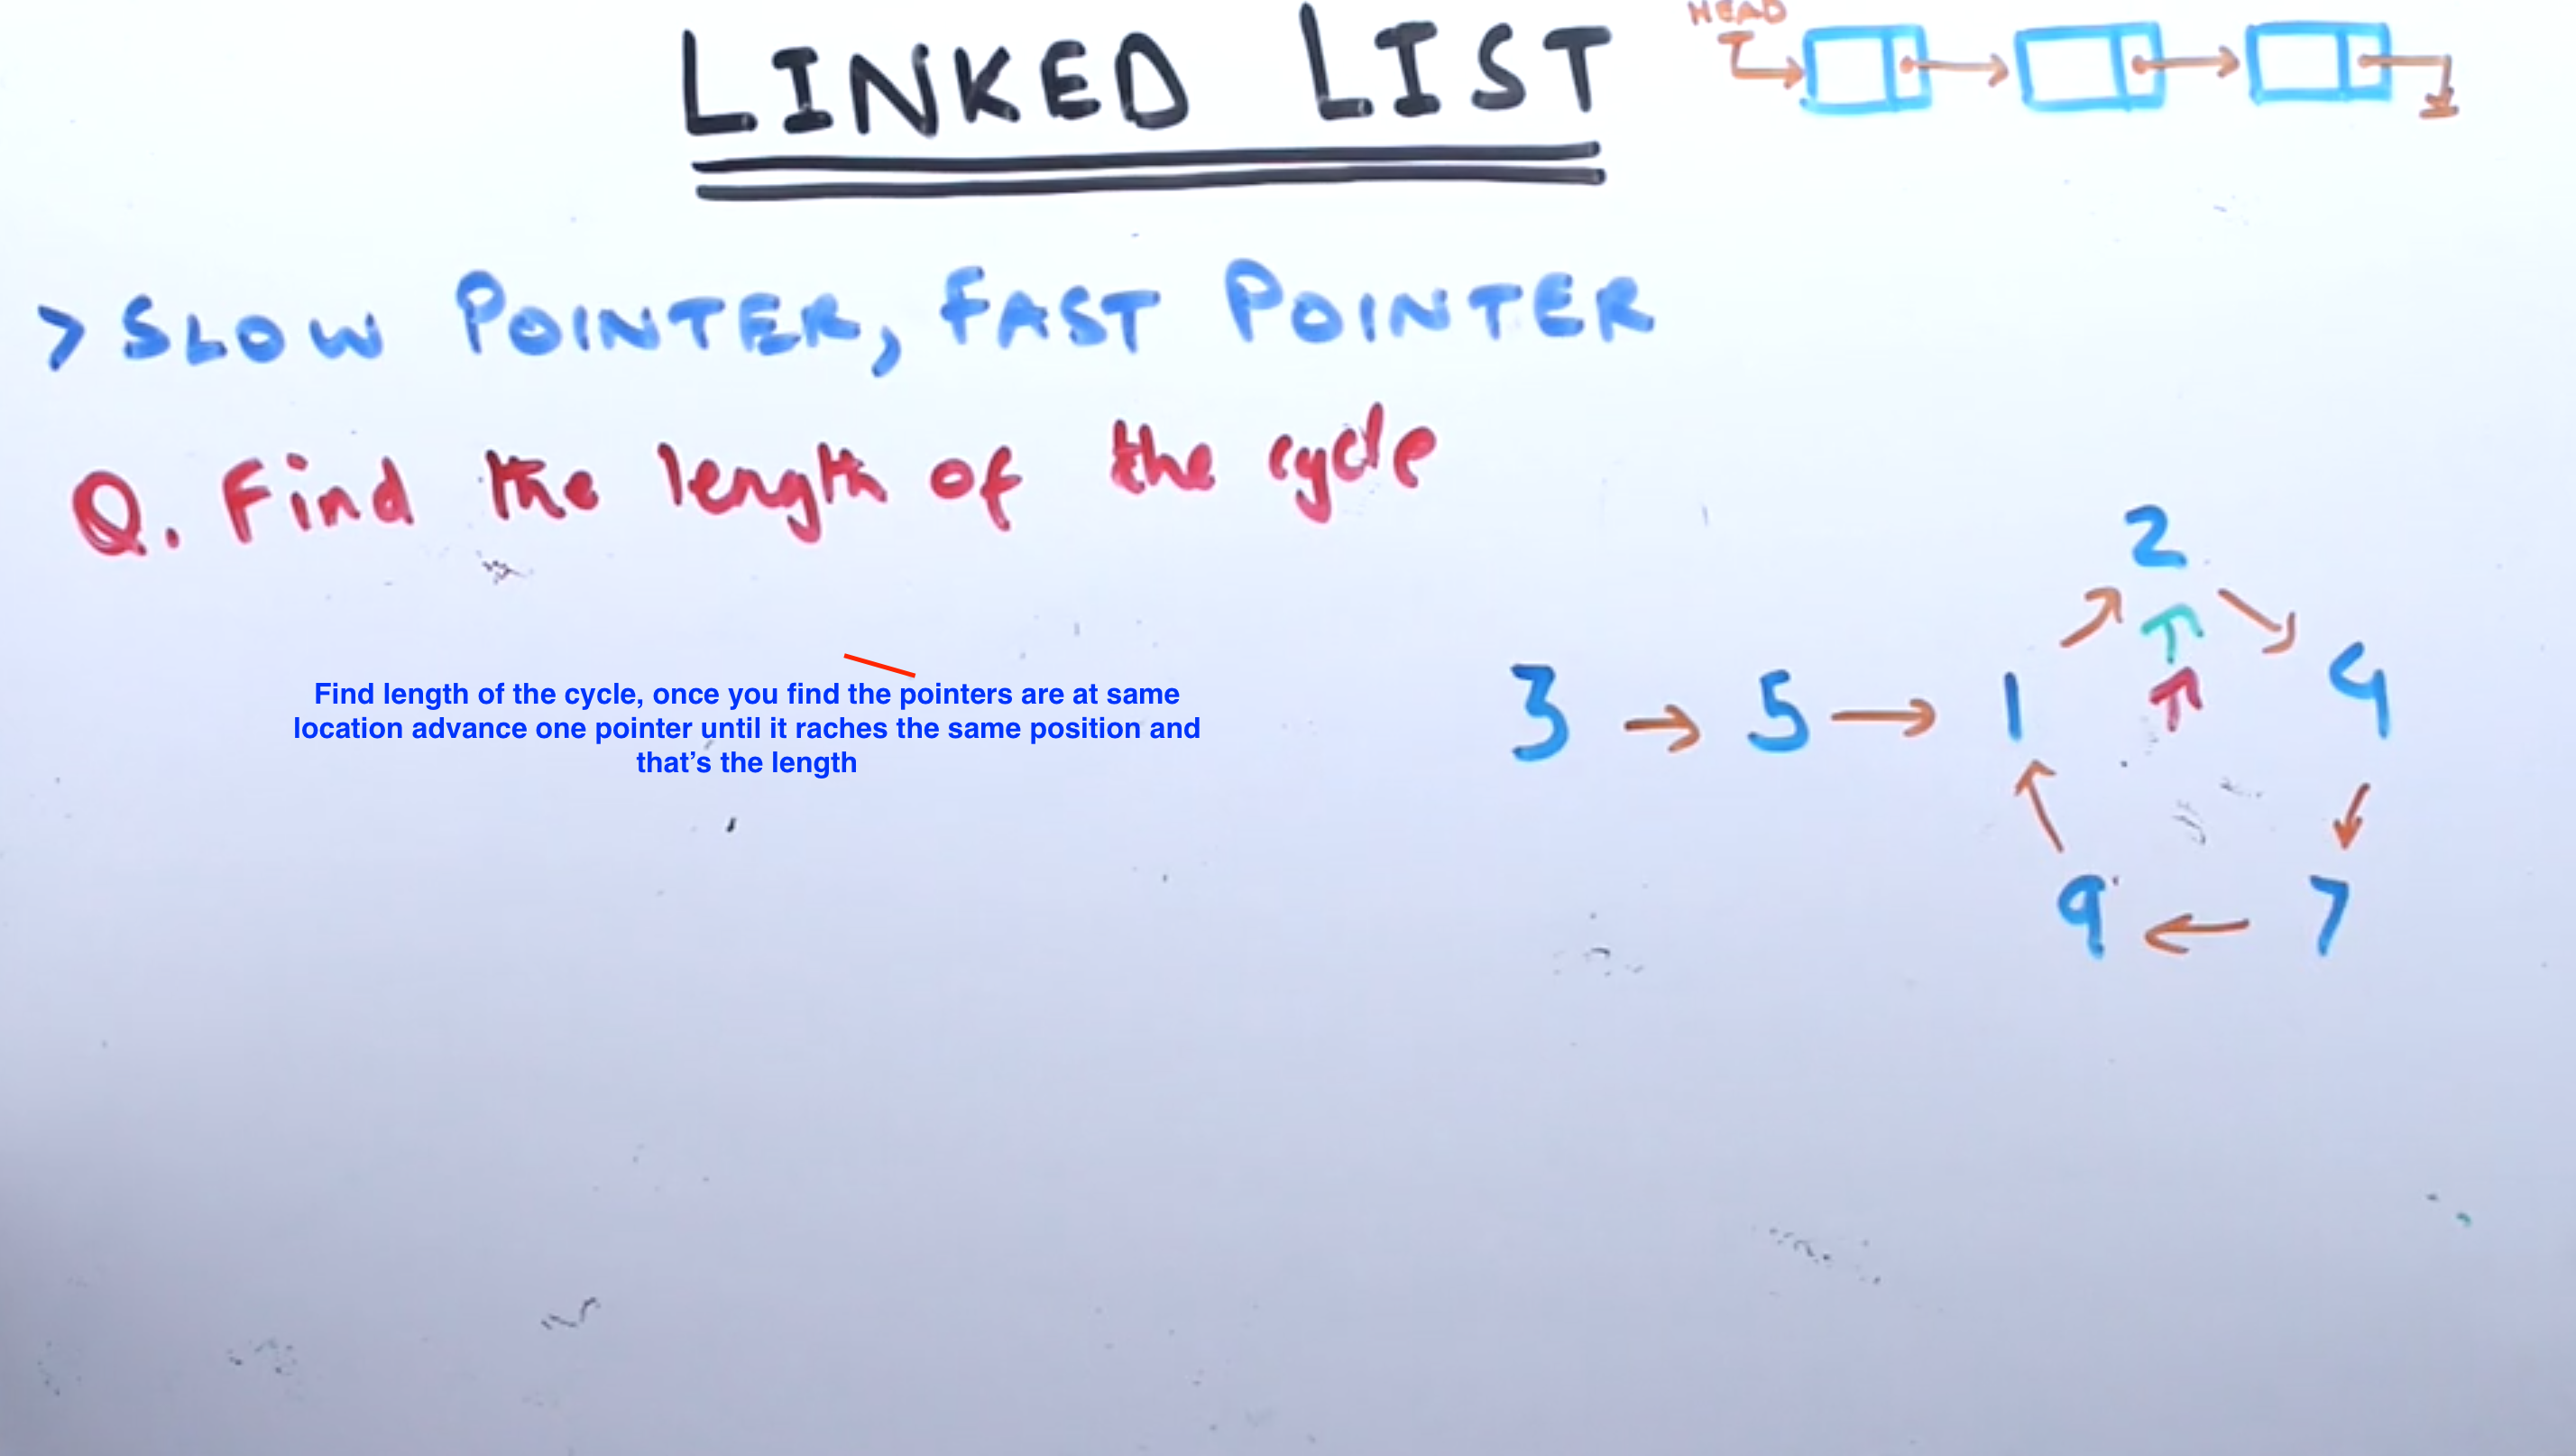 LINKED LIST
HEAD
> SLOW POINTER, FAST POINTER
Q. Find the length of the cycle
Find length of the cycle, once you find the pointers are at same
location advance one pointer until it raches the same position and
that’s the length
2
3 → 5 → 1 4
9 ← 7